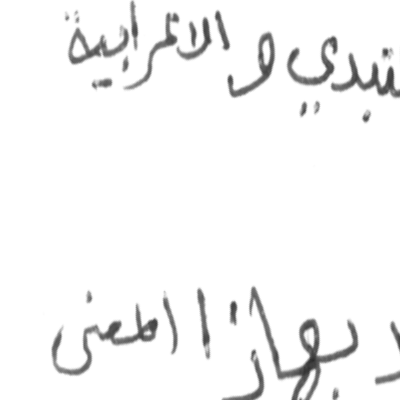 لتبدي و الاعرابية
بهاذا المعنى